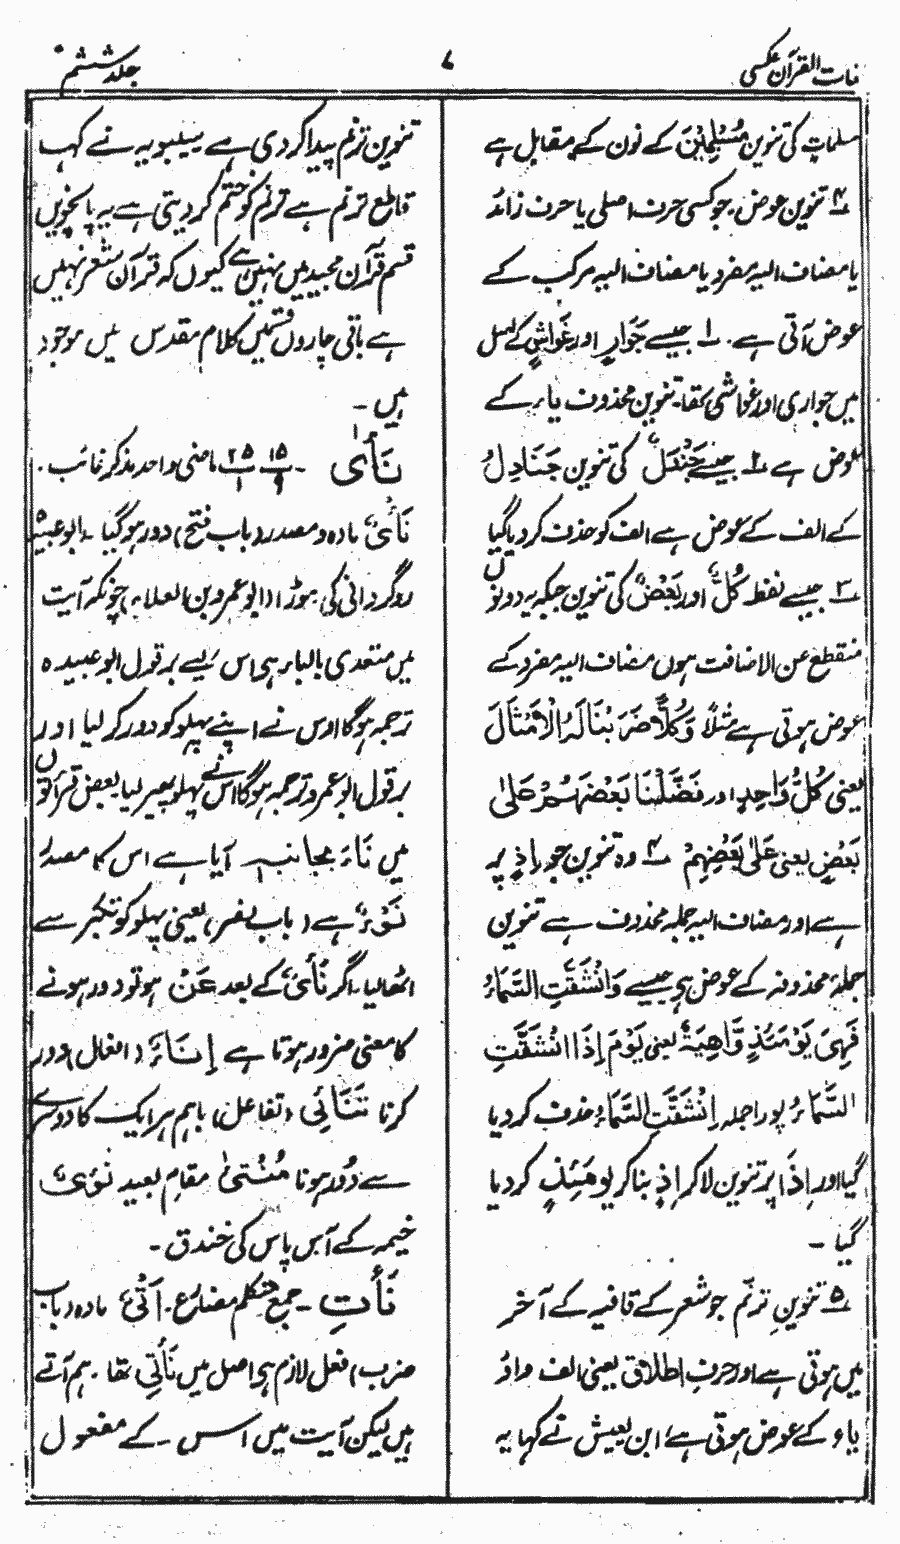 جلد ششم
۷
لغات القرآن عکسی
مسلماتٍ کی تنوین مُسْلِمِیْنَ کے نون کے مقابل ہے
۴ تنوین عوض۔ جو کسی حرف اصلی یا حرف زائد
یا مضاف الیہ مفرد یا مضاف الیہ مرکب کے
عوض آتی ہے۔ ۱ جیسے جَوَارٍ اور غَوَاشٍ کے اصل
میں جواری اور غواشی تھا۔ تنوین محذوف یاء کے
عوض ہے ۲ جیسے جَنَدِلٌ کی تنوین جَنَادِلُ
کے الف کے عوض ہے الف کو حذف کر دیا گیا
۳ جیسے لفظ کُلٌّ اور بَعْضٌ کی تنوین جبکہ یہ دونوں
منقطع عن الاضافت ہوں مضاف الیہ مفرد کے
عوض ہوتی ہے مثلاً وَکُلًّا ضَرَبْنَا لَہُ الْاَمْثَالَ
یعنی کُلُّ وَاحِدٍ اور فَضَّلْنَا بَعْضَہُمْ عَلیٰ
بَعْضٍ یعنی عَلیٰ بَعْضِہِمْ ۴ وہ تنوین جو اِذٍ پر
ہے اور مضاف الیہ جملہ محذوف ہے تنوین
جملۂ محذوفہ کے عوض ہی جیسے وَانْشَقَّتِ السَّمَاءُ
فَہِیَ یَوْمَئِذٍ وَّاہِیَۃٌ یعنی یَوْمَ اِذَا انْشَقَّتِ
السَّمَاءُ پورا جملہ اِنْشَقَّتِ السَّمَاءُ حذف کر دیا
گیا اور اِذَا پر تنوین لا کر اِذٍ بنا کر یومَئِذٍ کر دیا
گیا۔
۵ تنوینِ ترنّم جو شعر کے قافیہ کے آخر
میں ہوتی ہے اور حرفِ اطلاق یعنی الف واؤ
یاء کے عوض ہوتی ہے، ابن یعیش نے کہا یہ
تنوین ترنم پیدا کر دی ہے سیبویہ نے کہا
قاطع ترنم ہے ترنم کو ختم کر دیتی ہے یہ پانچویں
قسم قرآن مجید میں نہیں ہے کیوں کہ قرآن شعر نہیں
ہے باقی چاروں قسمیں کلام مقدس میں موجود
ہیں۔
نَأٰی ۱۵/۹ ۲۵/۱ ماضی واحد مذکر غائب۔
نَأْیٌ مادہ و مصدر (باب فتح) دور ہو گیا۔ (ابو عبیدہ)
روگردانی کی، موڑا (ابو عمرو بن العلاء) چونکہ آیت
میں متعدی بالباء ہی اس لیے بر قول ابو عبیدہ
ترجمہ ہوگا اوس نے اپنے پہلو کو دور کر لیا اور
بر قول ابو عمرو ترجمہ ہوگا اس نے پہلو پھیر لیا بعض قرأتوں
میں نَاءَ بجانبہ آیا ہے اس کا مصدر
نَوْءٌ ہے (باب نصر) یعنی پہلو کو تکبر سے
اٹھا لیا۔ اگر نَأْیٌ کے بعد عَنْ ہو تو دور ہونے
کا معنی ضرور ہوتا ہے اِنَاءٌ (افعال) دور
کرنا تَنَائِی (تفاعل) باہم ہر ایک کا دوسرے
سے دُور ہونا مُنْتَئیٰ مقامِ بعید نُؤیٌ
خیمہ کے آس پاس کی خندق۔
نَأْتِ۔ جمع متکلم مضارع۔ اَتْیٌ مادہ (باب
ضرب) فعل لازم ہی اصل میں نَأْتِی تھا۔ ہم آتے
ہیں لیکن آیت میں اس۔ کے مفعول